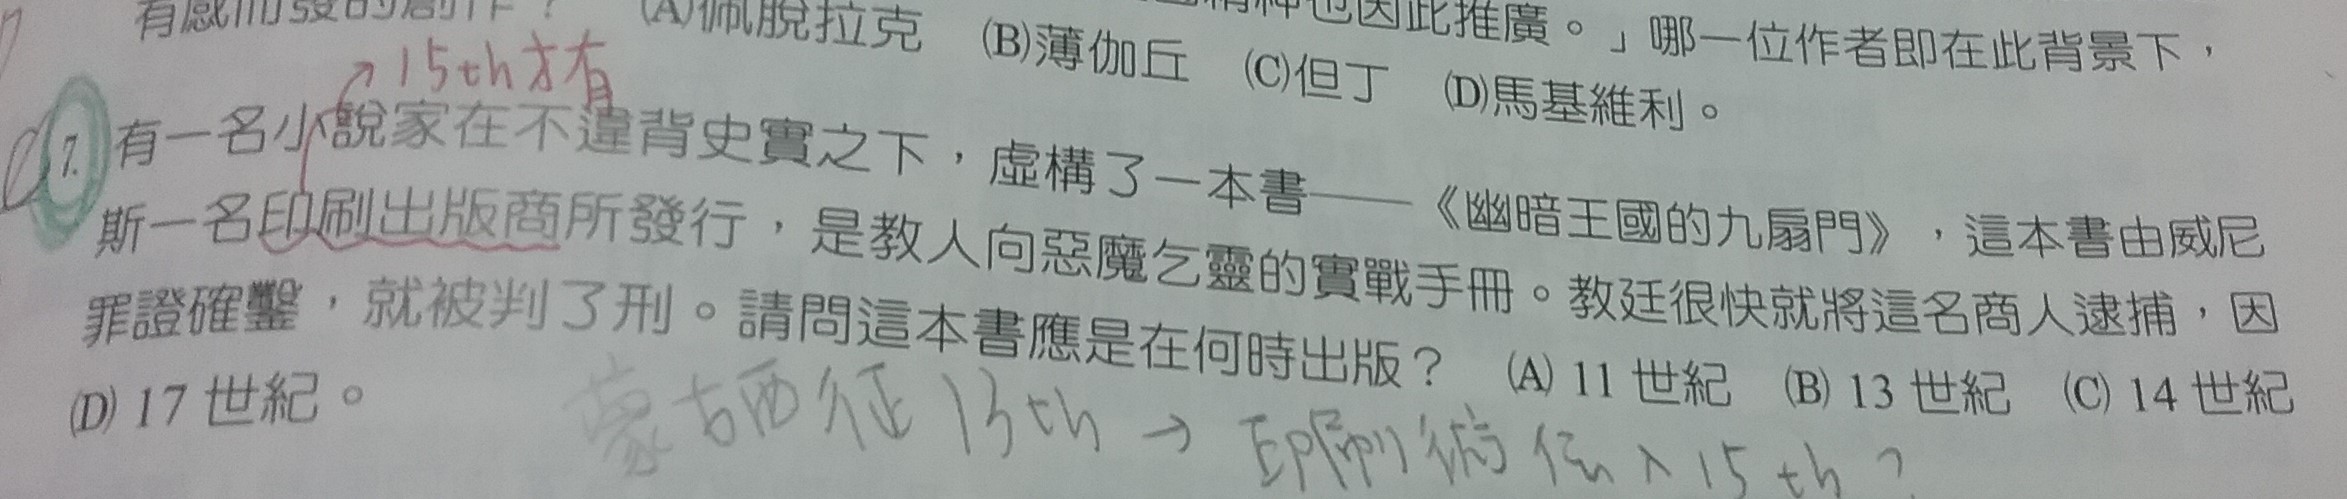 有感而發的創作？ (A)佩脫拉克 (B)薄伽丘 (C)但丁 (D)馬基維利。
精神也因此推廣。」哪一位作者即在此背景下，
↗15th才有
7. 有一名小說家在不違背史實之下，虛構了一本書——《幽暗王國的九扇門》，這本書由威尼
斯一名印刷出版商所發行，是教人向惡魔乞靈的實戰手冊。教廷很快就將這名商人逮捕，因
罪證確鑿，就被判了刑。請問這本書應是在何時出版？ (A) 11 世紀 (B) 13 世紀 (C) 14 世紀
(D) 17 世紀。
蒙古西征13th → 印刷術傳入15th？